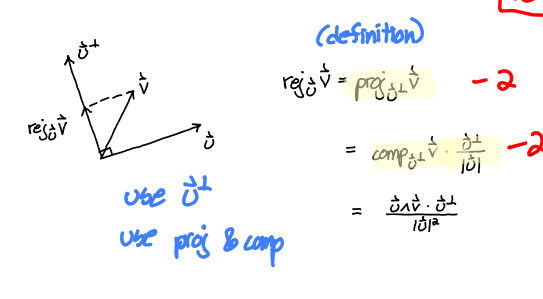 (definition)
u⃗⊥
v⃗
rej_u⃗ v⃗
u⃗
rej_u⃗ v⃗ = proj_u⃗⊥ v⃗ -2
= comp_u⃗⊥ v⃗ · u⃗⊥/|u⃗| -2
= u⃗∧v⃗ · u⃗⊥/|u⃗|²
use u⃗⊥
use proj & comp